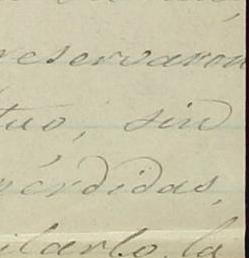 reservaron
tuo, sin
pérdidas,
ilarlo, la